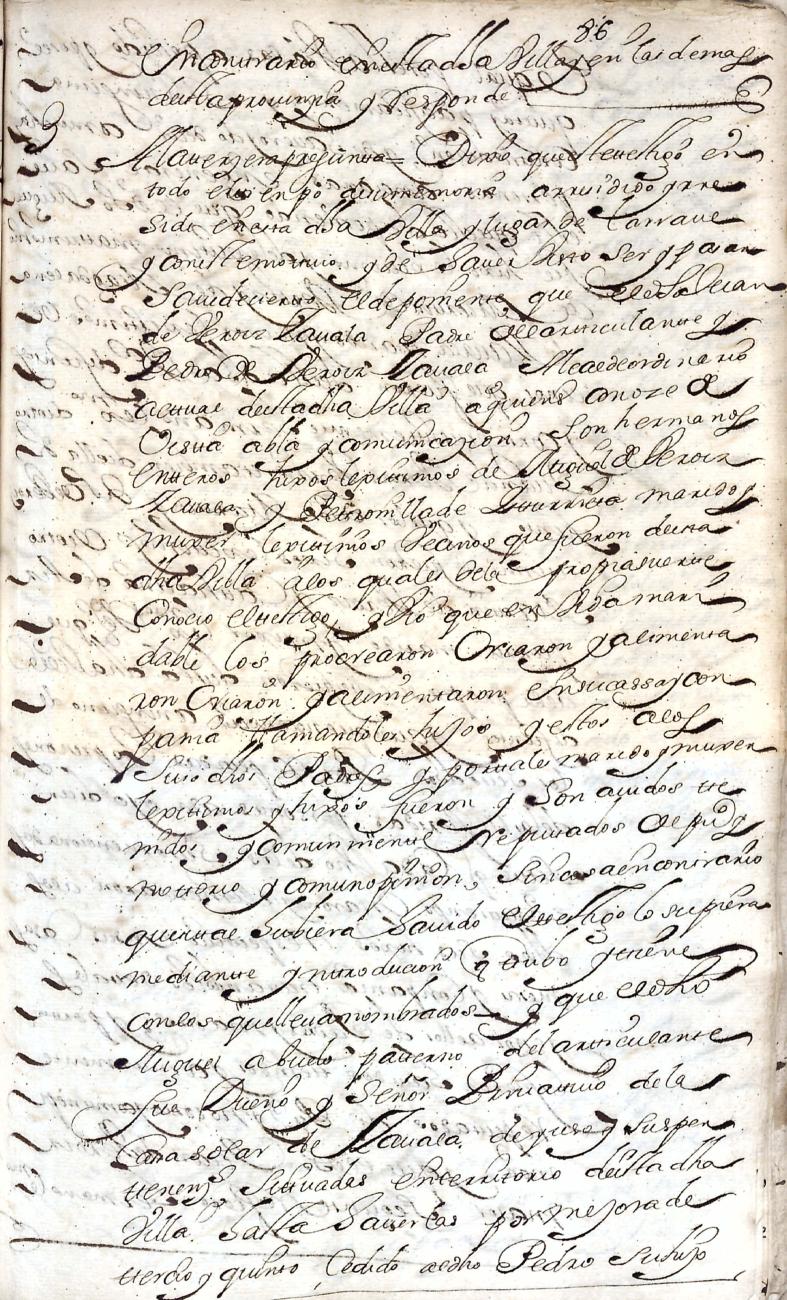 86
en contrario en esta dha Villa y en las demas
desta provinzia y responde
3 A la terzera pregunta = Dixo que este testigo en
todo el tienpo de su memoria a rresidido y rre
side en esta dha Villa y lugar de Larraue
y con este motiuo y de hauer visto ser y pasar
saue de zierto el deponente que el dho Juan
de Veroiz Zauala Padre del articulante y
Pedro de Veroiz Zauala Alcalde ordinario
actual desta dha Villa a quienes conoze de
Vista abla y comunicazion son hermanos
enteros hijos lexitimos de Miguel de Veroiz
Zauala y Petronilla de Yturrieta marido y
muxer lexitimos Vecinos que fueron desta
dha Villa a los quales de la propia suerte
Conocio el testigo y vio que en vida mari
dable los procrearon Criaron y alimenta
ron Criaron y alimentaron en su cassa y con
pania llamandoles hijos y estos a los
suso dhos Padres y por tales marido y muxer
lexitimos y hijos fueron y son auidos te
nidos y comunmente reputados de puco
nottorio y comun opinion, sin cosa en contrario
que si tal hubiera hauido el testigo lo supiera
mediante ynttroducion q tubo y tiene
con los que lleua nombrados y que el dho
Miguel abuelo paterno del articulante
fue Dueño y Señor Primitiuo de la
Cassa solar de Zauala de yuso y sus per
ttenenzs situadas en territorio desta dha
Villa hasta hauerlas por mejora de
tterzio y quinto Cedido a el dho Pedro su hijo